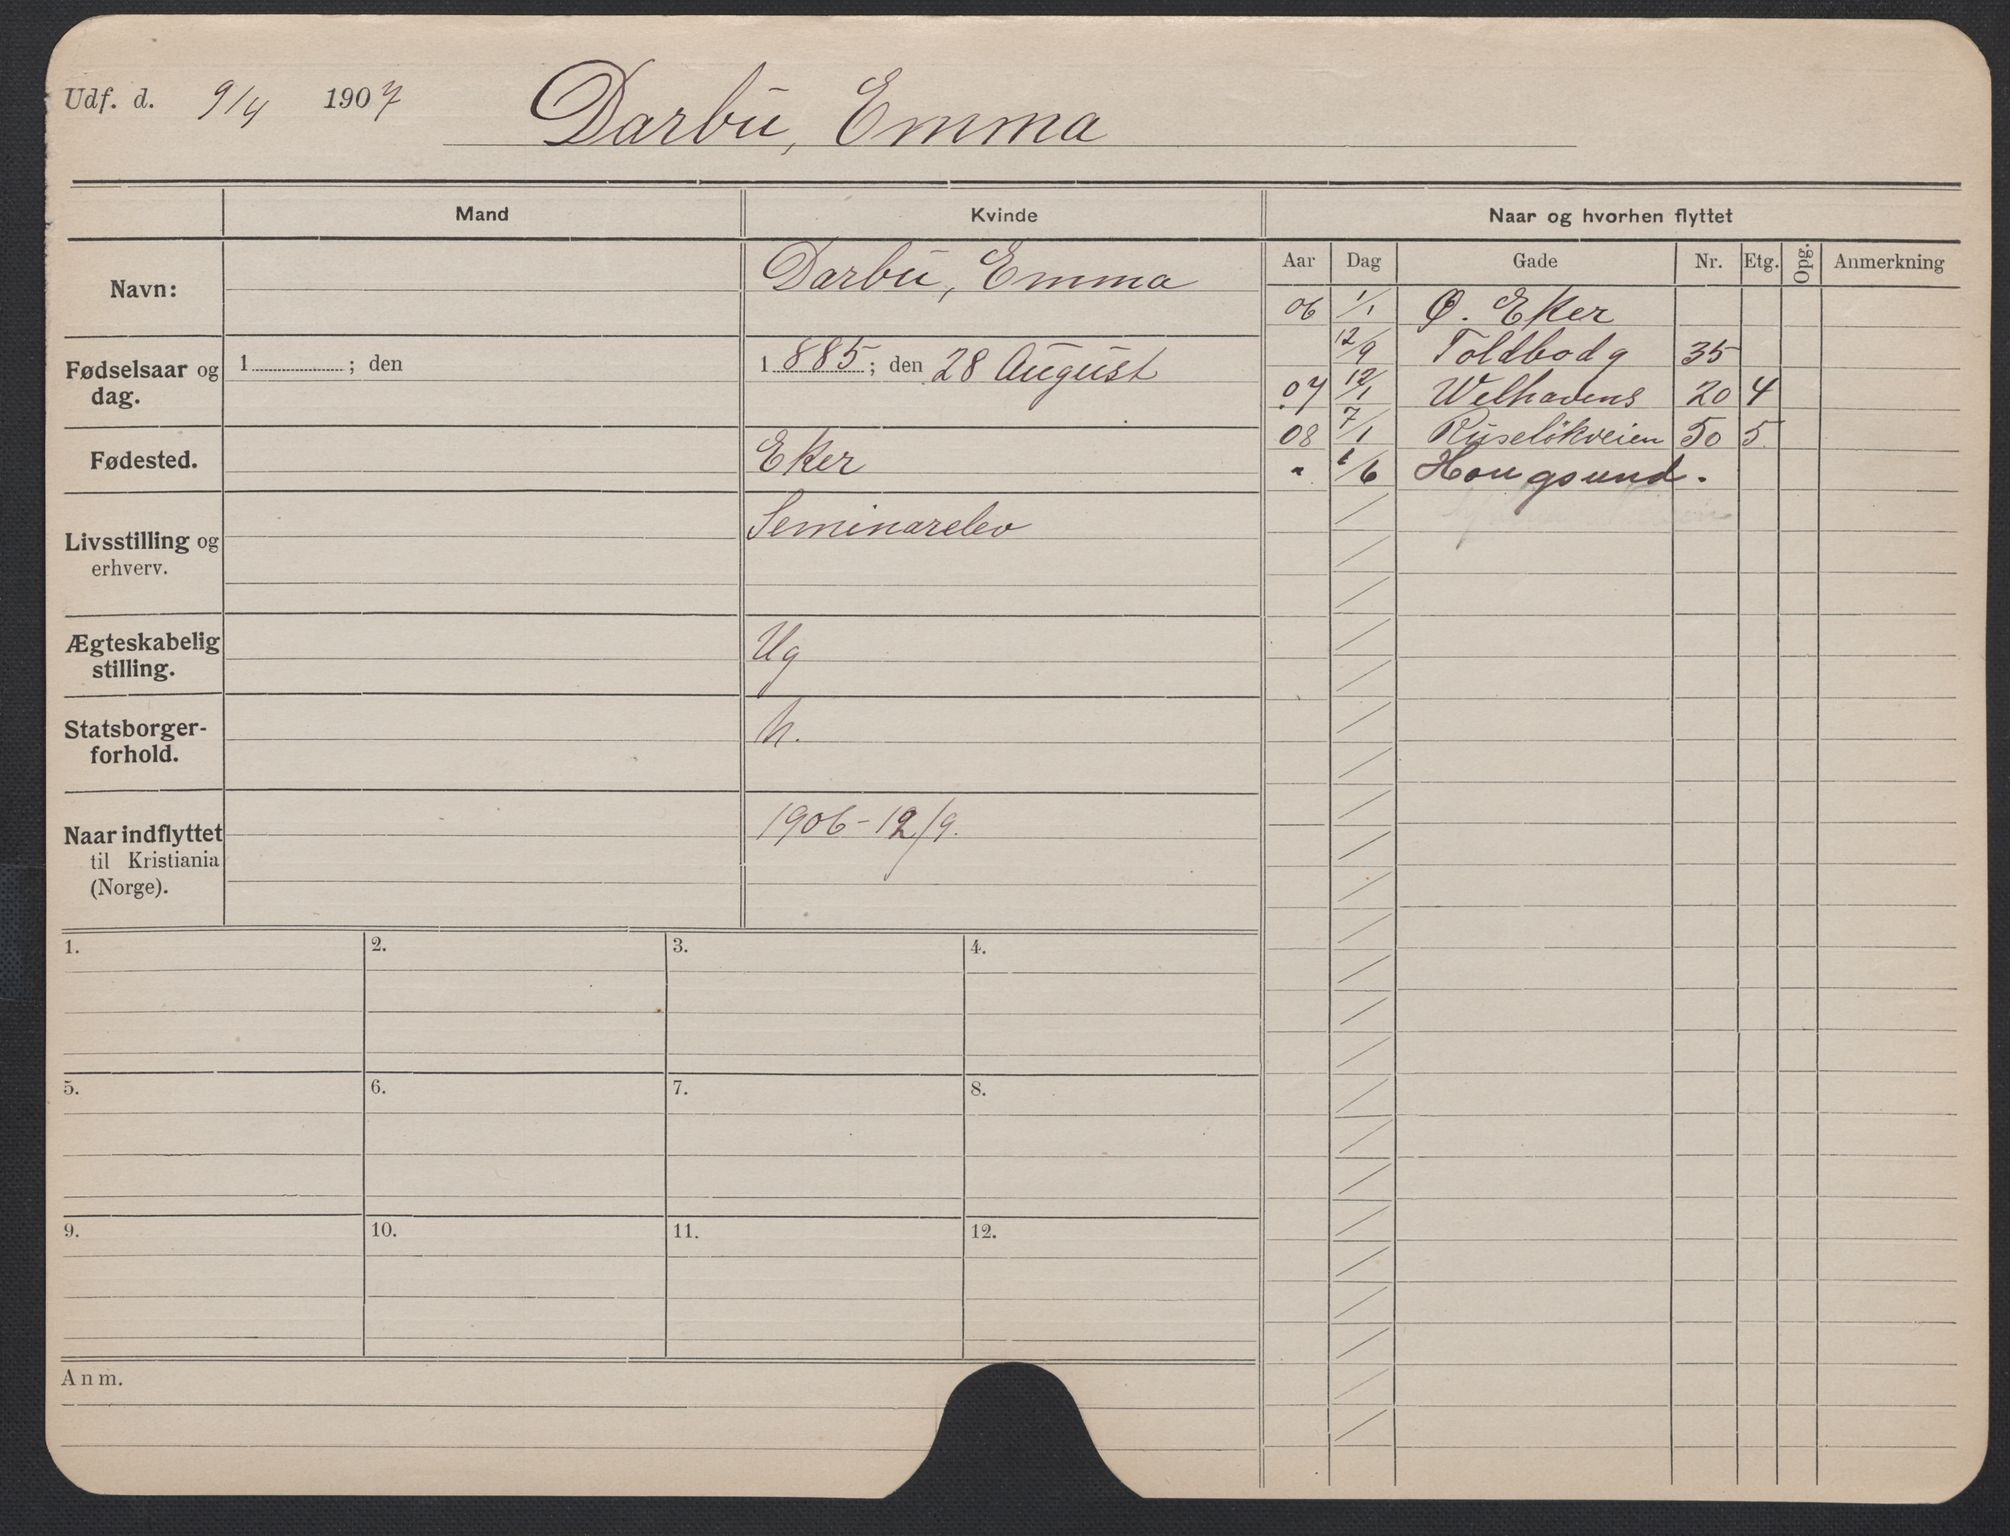 Udf. d. 9/4 1907 Darbu, Emma
Mand Kvinde Naar og hvorhen flyttet
Aar Dag Gade Nr. Etg. Opg. Anmerkning
Navn: Darbu, Emma
Fødselsaar og 1 ; den 1885 ; den 28 August
dag.
Fødested. Eker
Livsstilling og Seminarelev
erhverv.
Ægteskabelig Ug
stilling.
Statsborger- n.
forhold.
Naar indflyttet 1906 - 12/9.
til Kristiania
(Norge).
06 1/1 Ø. Eker
12/9 Toldbodg 35
07 12/1 Welhavens 20 4
08 7/1 Ruseløkveien 50 5
" /6 Hougsund.
1. 2. 3. 4.
5. 6. 7. 8.
9. 10. 11. 12.
Anm.